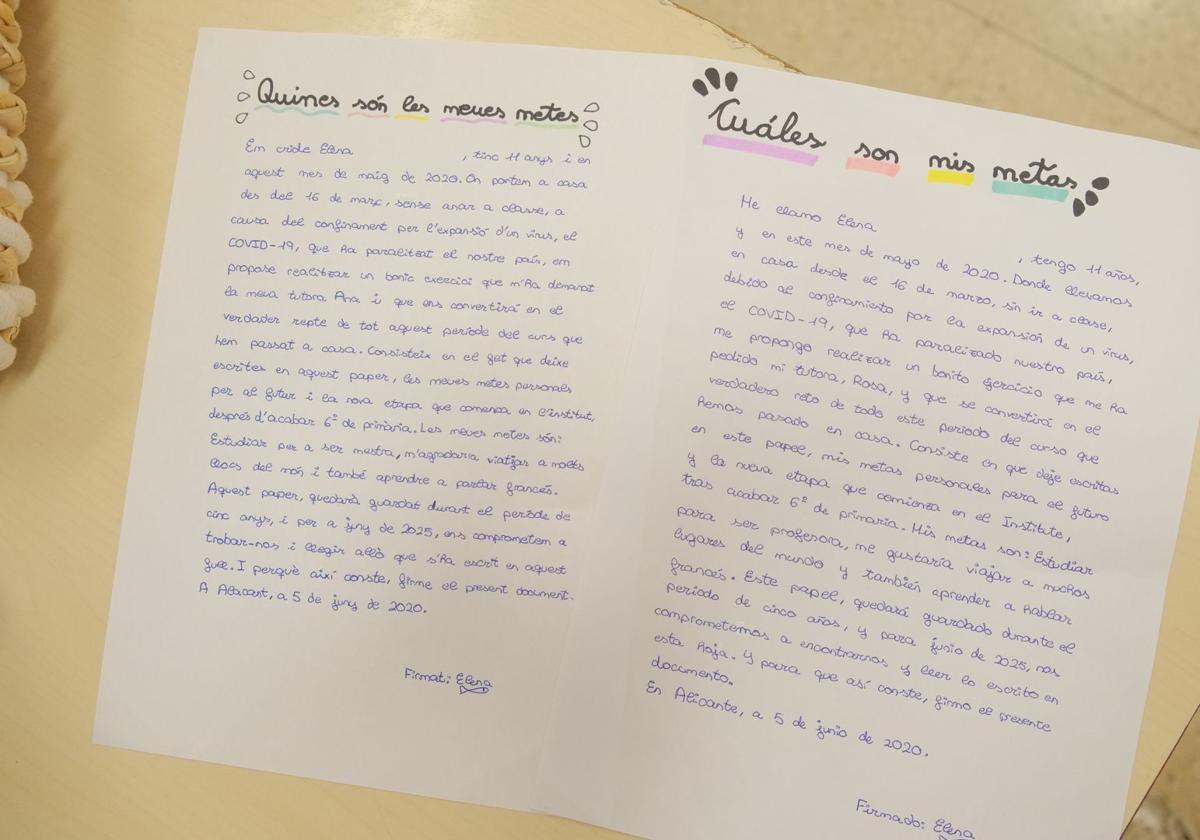 Quines són les meues metes
Em cride Elena , tinc 11 anys i en
aquest mes de maig de 2020. On portem a casa
des del 16 de març, sense anar a classe, a
causa del confinament per l'expansió d'un virus, el
COVID-19, que ha paralitzat el nostre país, em
propose realitzar un bonic exercici que m'ha demanat
la meva tutora Ana i que ens convertirà en el
verdader repte de tot aquest període del curs que
hem passat a casa. Consisteix en el fet que deixe
escrites en aquest paper, les meues metes personals
per al futur i la nova etapa que comença en l'institut,
després d'acabar 6º de primària. Les meues metes són:
Estudiar per a ser mestra, m'agradaria viatjar a molts
llocs del món i també aprendre a parlar francés.
Aquest paper, quedarà guardat durant el període de
cinc anys, i per a juny de 2025, ens comprometem a
trobar-nos i llegir allò que s'ha escrit en aquest
full. I perquè així conste, firme el present document.
A Alacant, a 5 de juny de 2020.
Firmat: Elena
Cuáles son mis metas
Me llamo Elena , tengo 11 años,
y en este mes de mayo de 2020. Donde llevamos
en casa desde el 16 de marzo, sin ir a clase,
debido al confinamiento por la expansión de un virus,
el COVID-19, que ha paralizado nuestro país,
me propongo realizar un bonito ejercicio que me ha
pedido mi tutora, Rosa, y que se convertirá en el
verdadero reto de todo este periodo del curso que
hemos pasado en casa. Consiste en que deje escritas
en este papel, mis metas personales para el futuro
y la nueva etapa que comienza en el Instituto,
tras acabar 6º de primaria. Mis metas son: Estudiar
para ser profesora, me gustaría viajar a muchos
lugares del mundo y también aprender a hablar
francés. Este papel, quedará guardado durante el
periodo de cinco años, y para junio de 2025, nos
comprometemos a encontrarnos y leer lo escrito en
esta hoja. Y para que así conste, firmo el presente
documento.
En Alicante, a 5 de junio de 2020.
Firmado: Elena